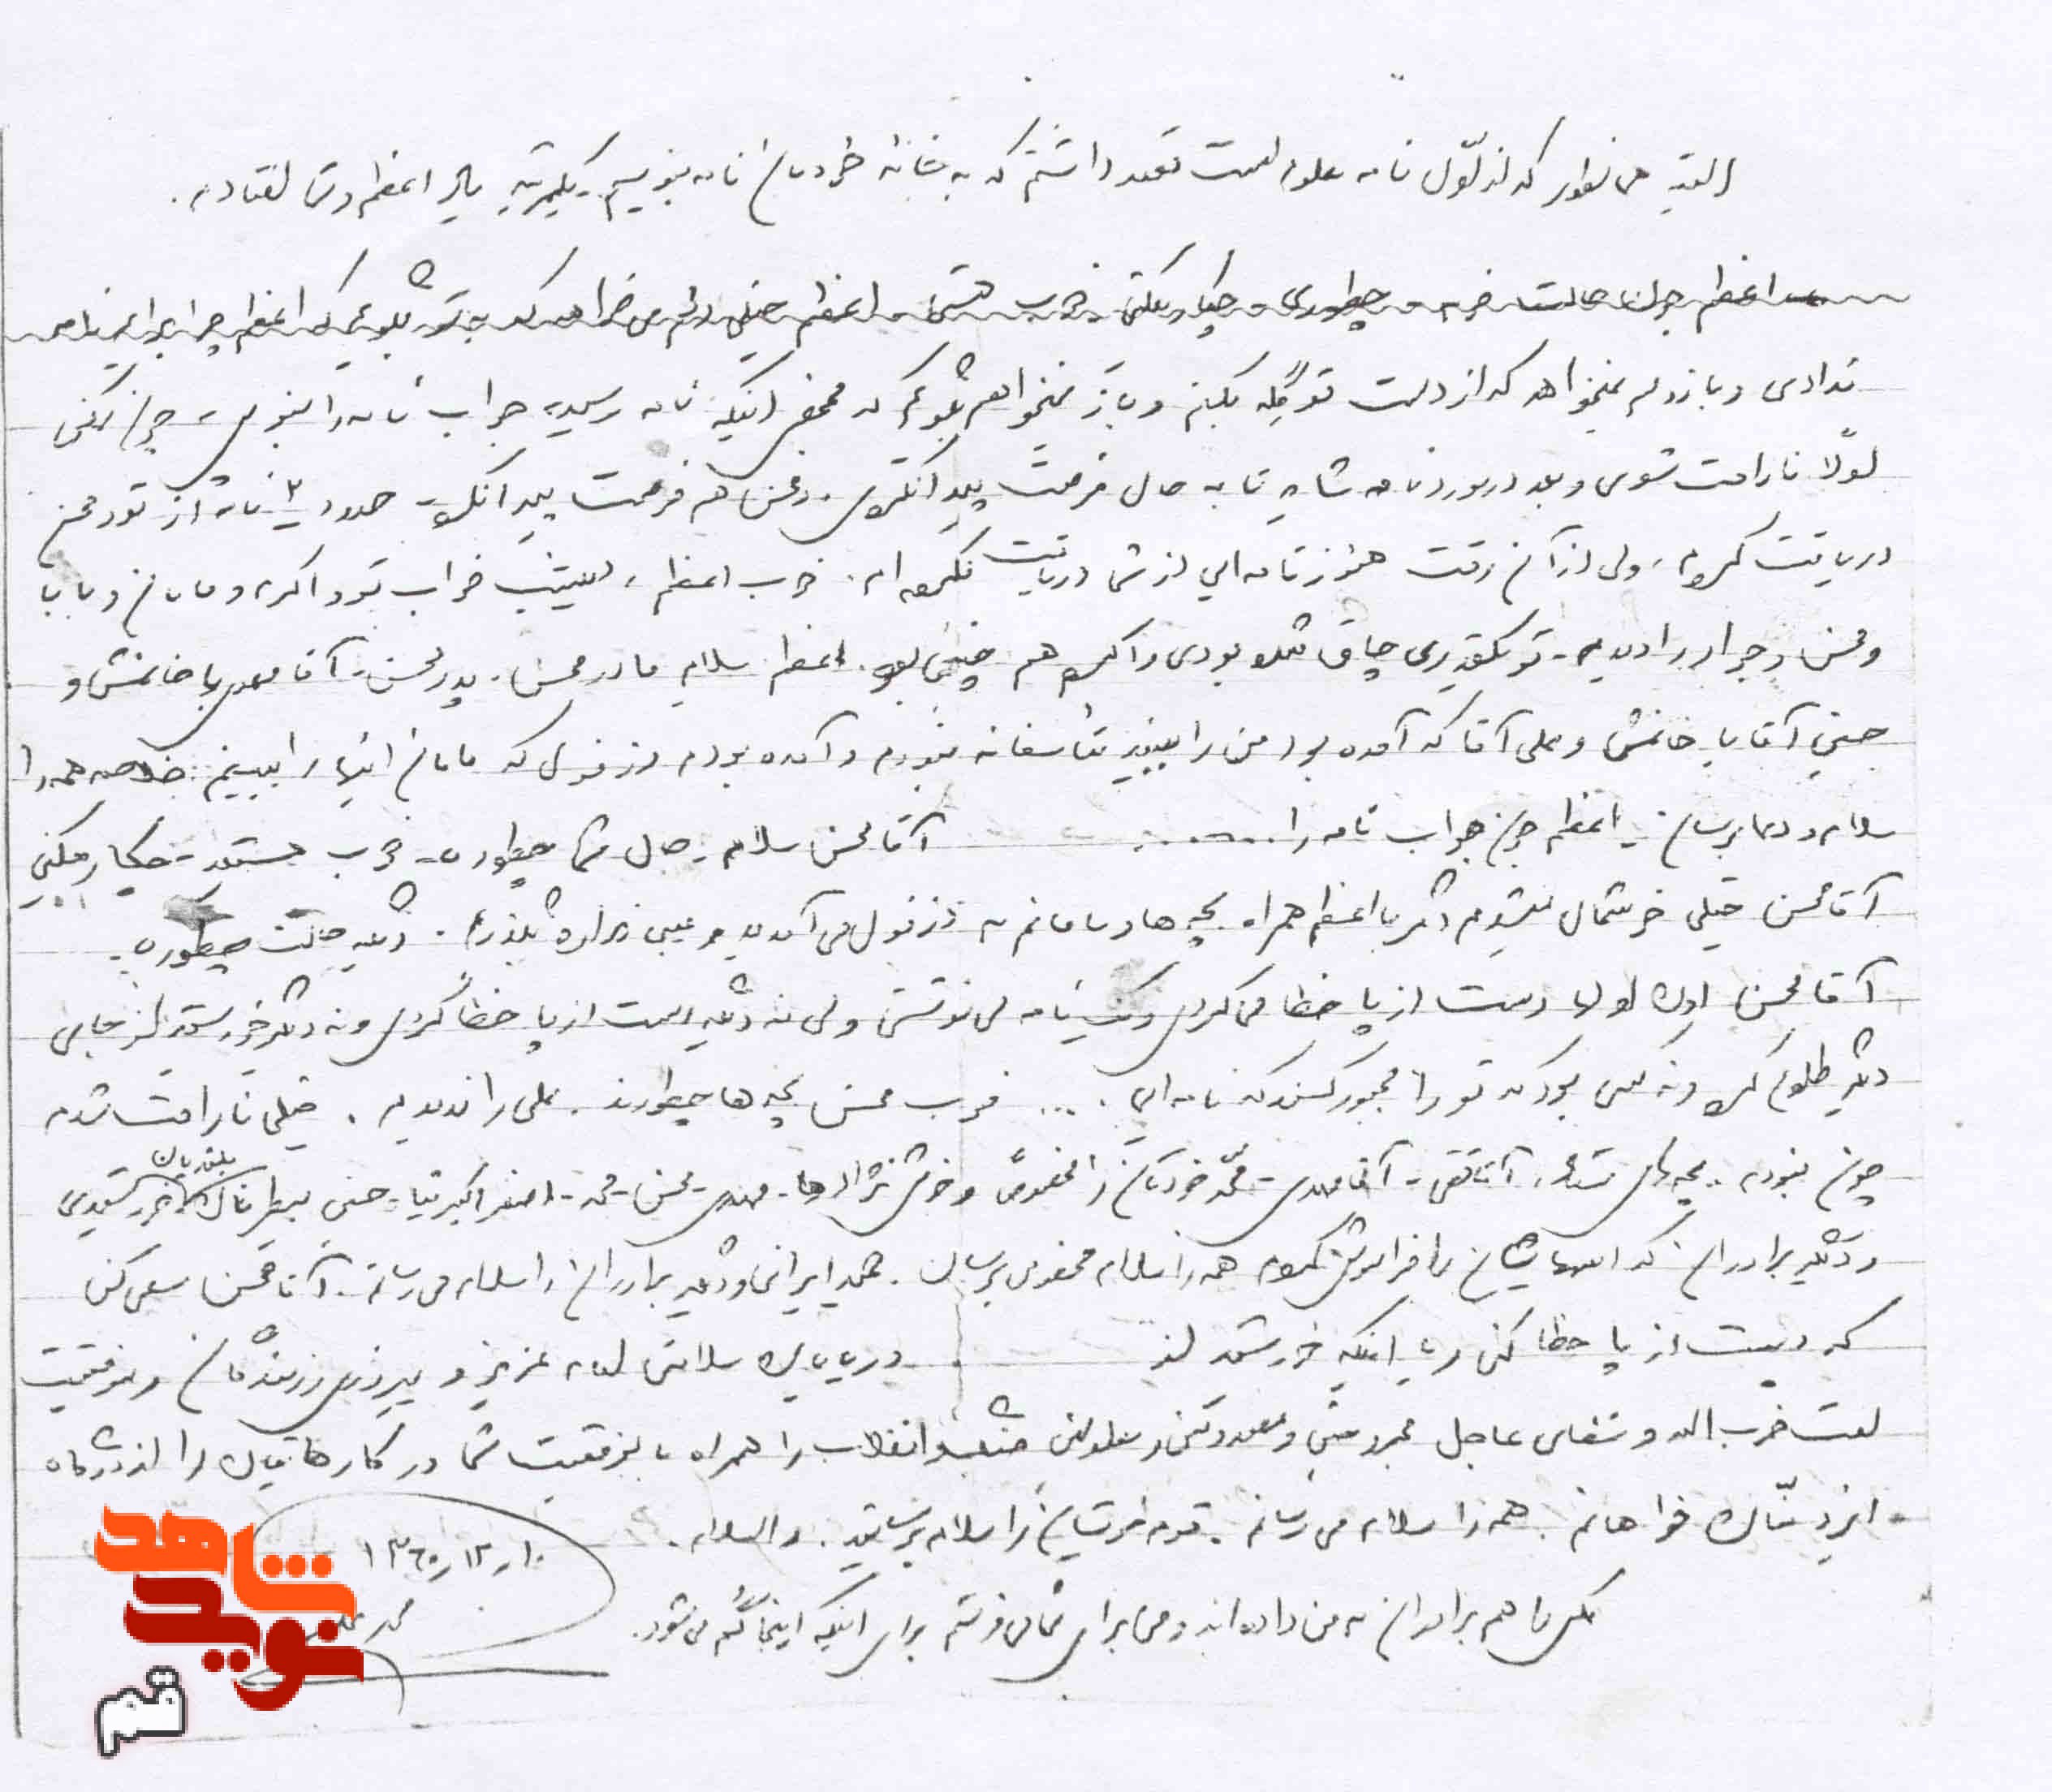 البته همانطور که از اول نامه معلوم است قصد داشتم که به خانه خودمان نامه بنویسم یکمرتبه یاد اعظم و شما افتادم.
اعظم جان حالت خوبه چطوری چکار میکنی خوب هستی اعظم خیلی دلم می خواهد که به تو بگویم که اعظم چرا جواب نامه
ندادی و باز دلم نمیخواهد که از دست تو گله بکنم و باز میخواهم بگویم که محض اینکه نامه رسید جواب نامه را بنویس چون ممکن
اولاً ناراحت شوی و بعد در مورد نامه شاید تا به حال فرصت پیدا نکردی و محسن هم فرصت پیدا نکرده حدود ۲ نامه از تو و محسن
دریافت کردم، ولی از آن وقت هنوز نامه ای از شما دریافت نکرده ام. خوب اعظم، دیشب خواب تو و اکرم و مامان و بابا
و محسن و جواد را دیدم تو یکقدری چاق شده بودی و اکرم هم چنین بود. اعظم سلام مادر محسن، پدر محسن، آقا مهدی با خانمش و
حسین آقا با خانمش و علی آقا که آمده بود من را ببیند متأسفانه نبودم و آمده بودم دزفول که مامان اینها را ببینم خلاصه همه را
سلام و دعا برسان. اعظم جان جواب نامه را ....... آقا محسن سلام حال شما چطوره خوب هستید چکار میکنی
آقا محسن خیلی خوشحال میشوم اگر با اعظم همراه بچه ها و مامانم به دزفول می آمدید و عیبی ندارد بگذریم. دیگه حالت چطوره.
آقا محسن اون اولها دست از پا خطا می کردی و یک نامه می نوشتی ولی نه دیگه دست از پا خطا کردی و نه دیگر خورشید از جای
دیگر طلوع کرد و نه کسی بود که تو را مجبور کند که نامه ای .... خوب محسن بچه ها چطورند. علی را ندیدم. خیلی ناراحت شدم
چون نبودم. بچه های آقا تقی آقا مهدی محمد خودتان را مخصوصاً و خوش نژادها مهدی محسن محمد اصغر اکبرنیا حسن
و دیگر برادران که اسمهایشان را فراموش کردم همه را سلام مخصوص برسان. همه ایرانی و دیگر برادران را سلام می رسانم. آقا محسن سعی کن
که دست از پا خطا کنی و یا اینکه خورشید از در پایان سلامتی امام عزیز و پیروزی رزمندگان و موفقیت
امت حزب الله و شفای عاجل مجروحین و معدودین و معلولین انقلاب را همراه با موفقیت شما در کارهایتان را از درگاه
ایزد منّان خواهانم. همه را سلام می رسانم. قوم خویشان را سلام برسانید. والسلام.
۱۰ر۱۲ر۱۳۶۰
محمد
عکس را هم برادران به من داده اند و من برای شما می فرستم برای اینکه اینجا گم می شود.
شاهد
نوید
قم